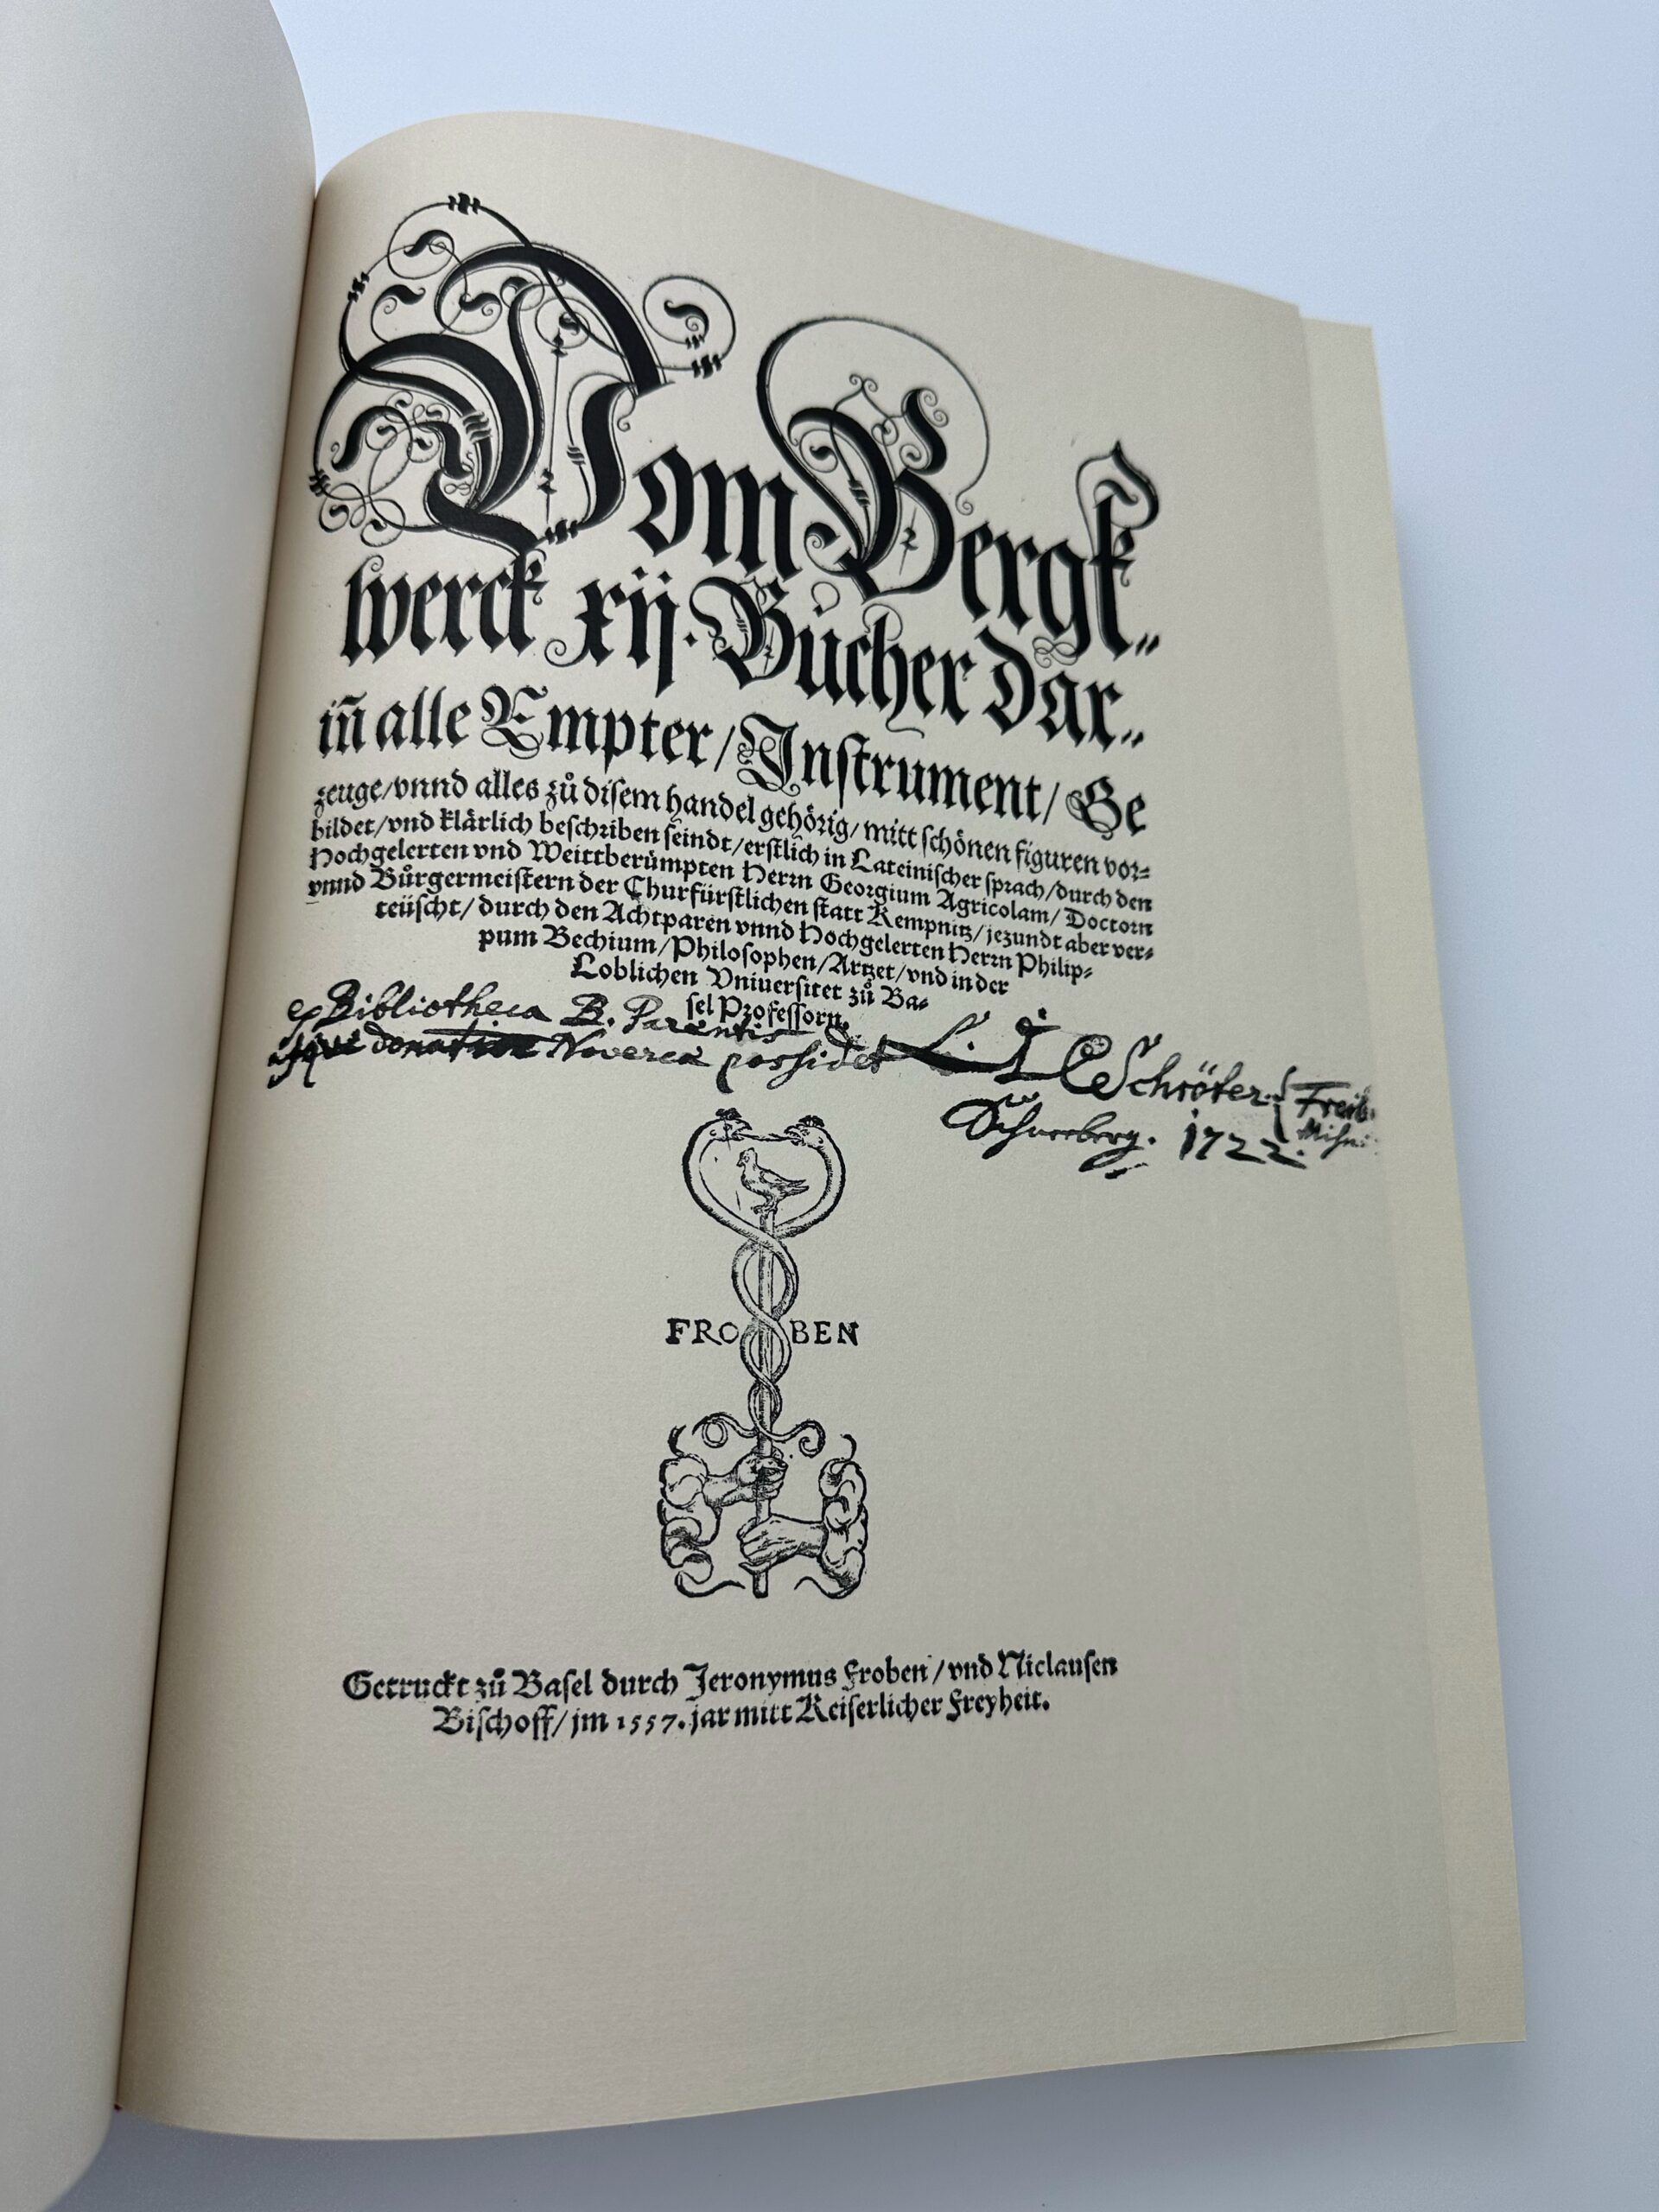 Vom Bergk⸗
werck xij. Bücher dar⸗
iñ alle Empter/ Instrument/ Ge
zeuge/ vnnd alles zů disem handel gehörig/ mitt schönen figuren vor⸗
bildet/ vnd klärlich beschriben seindt/ erstlich in Lateinischer sprach/ durch den
Hochgelerten vnd Weittberümpten Herrn Georgium Agricolam/ Doctorn
vnnd Bürgermeistern der Churfürstlichen statt Kempnitz/ jezundt aber ver⸗
teüscht/ durch den Achtparen vnnd Hochgelerten Herrn Philip⸗
pum Bechium/ Philosophen/ Artzet/ vnd in der
Loblichen Vniuersitet zů Ba⸗
sel Professorn.
ex Bibliotheca B. Parentis
donatione Noverca possidet Schröter.
Schneeberg. 1722.
FRO BEN
Getruckt zů Basel durch Jeronymus Froben/ vnd Niclausen
Bischoff/ jm 1557. jar mitt Keiserlicher Freyheit.